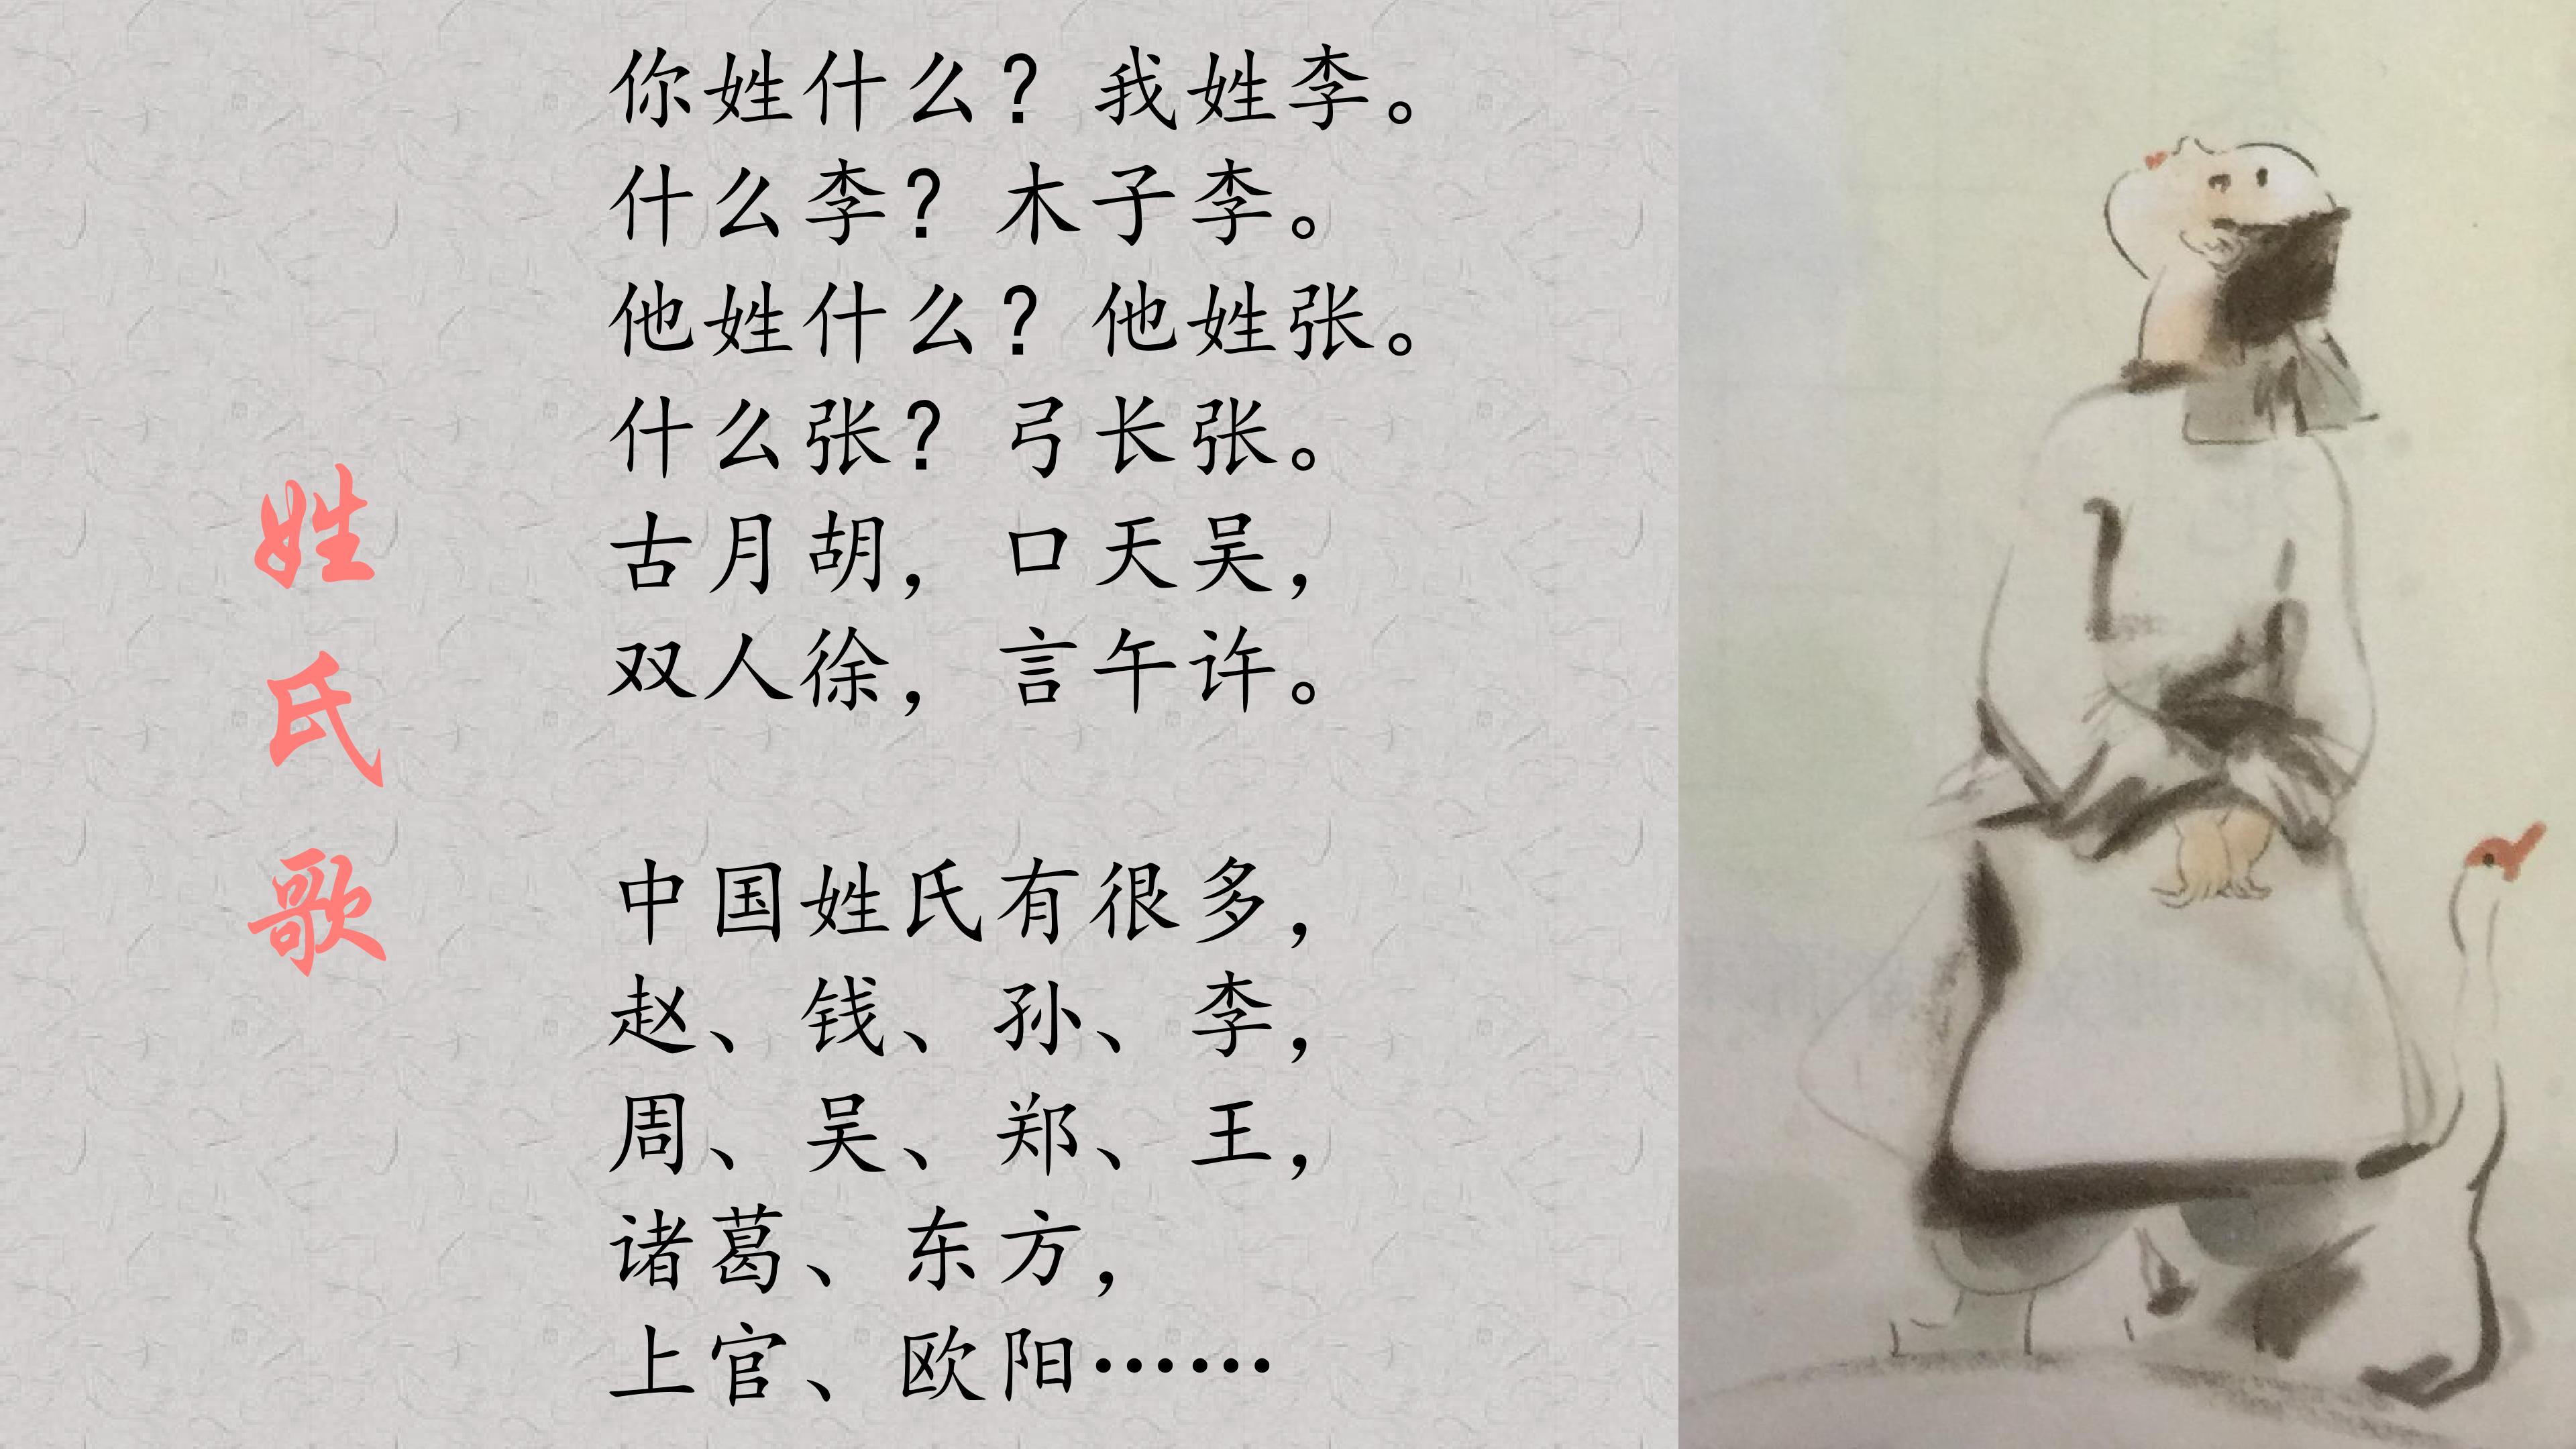 姓氏歌
你姓什么？我姓李。
什么李？木子李。
他姓什么？他姓张。
什么张？弓长张。
古月胡，口天吴，
双人徐，言午许。
中国姓氏有很多，
赵、钱、孙、李，
周、吴、郑、王，
诸葛、东方，
上官、欧阳……